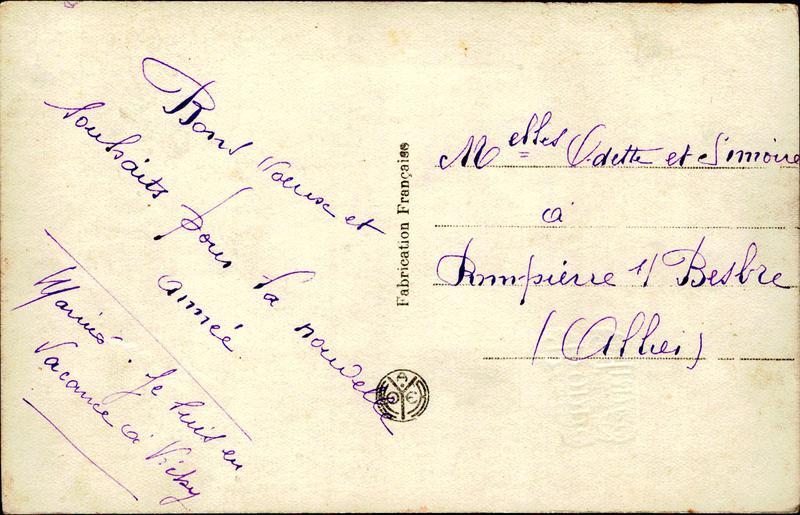 Bons voeux et
souhaits pour la nouvelle
année
Marius. Je suis en
Vacance à Vichy
Fabrication Française
Melles Odette et Simone
à
Dompierre s/ Besbre
(Allier)